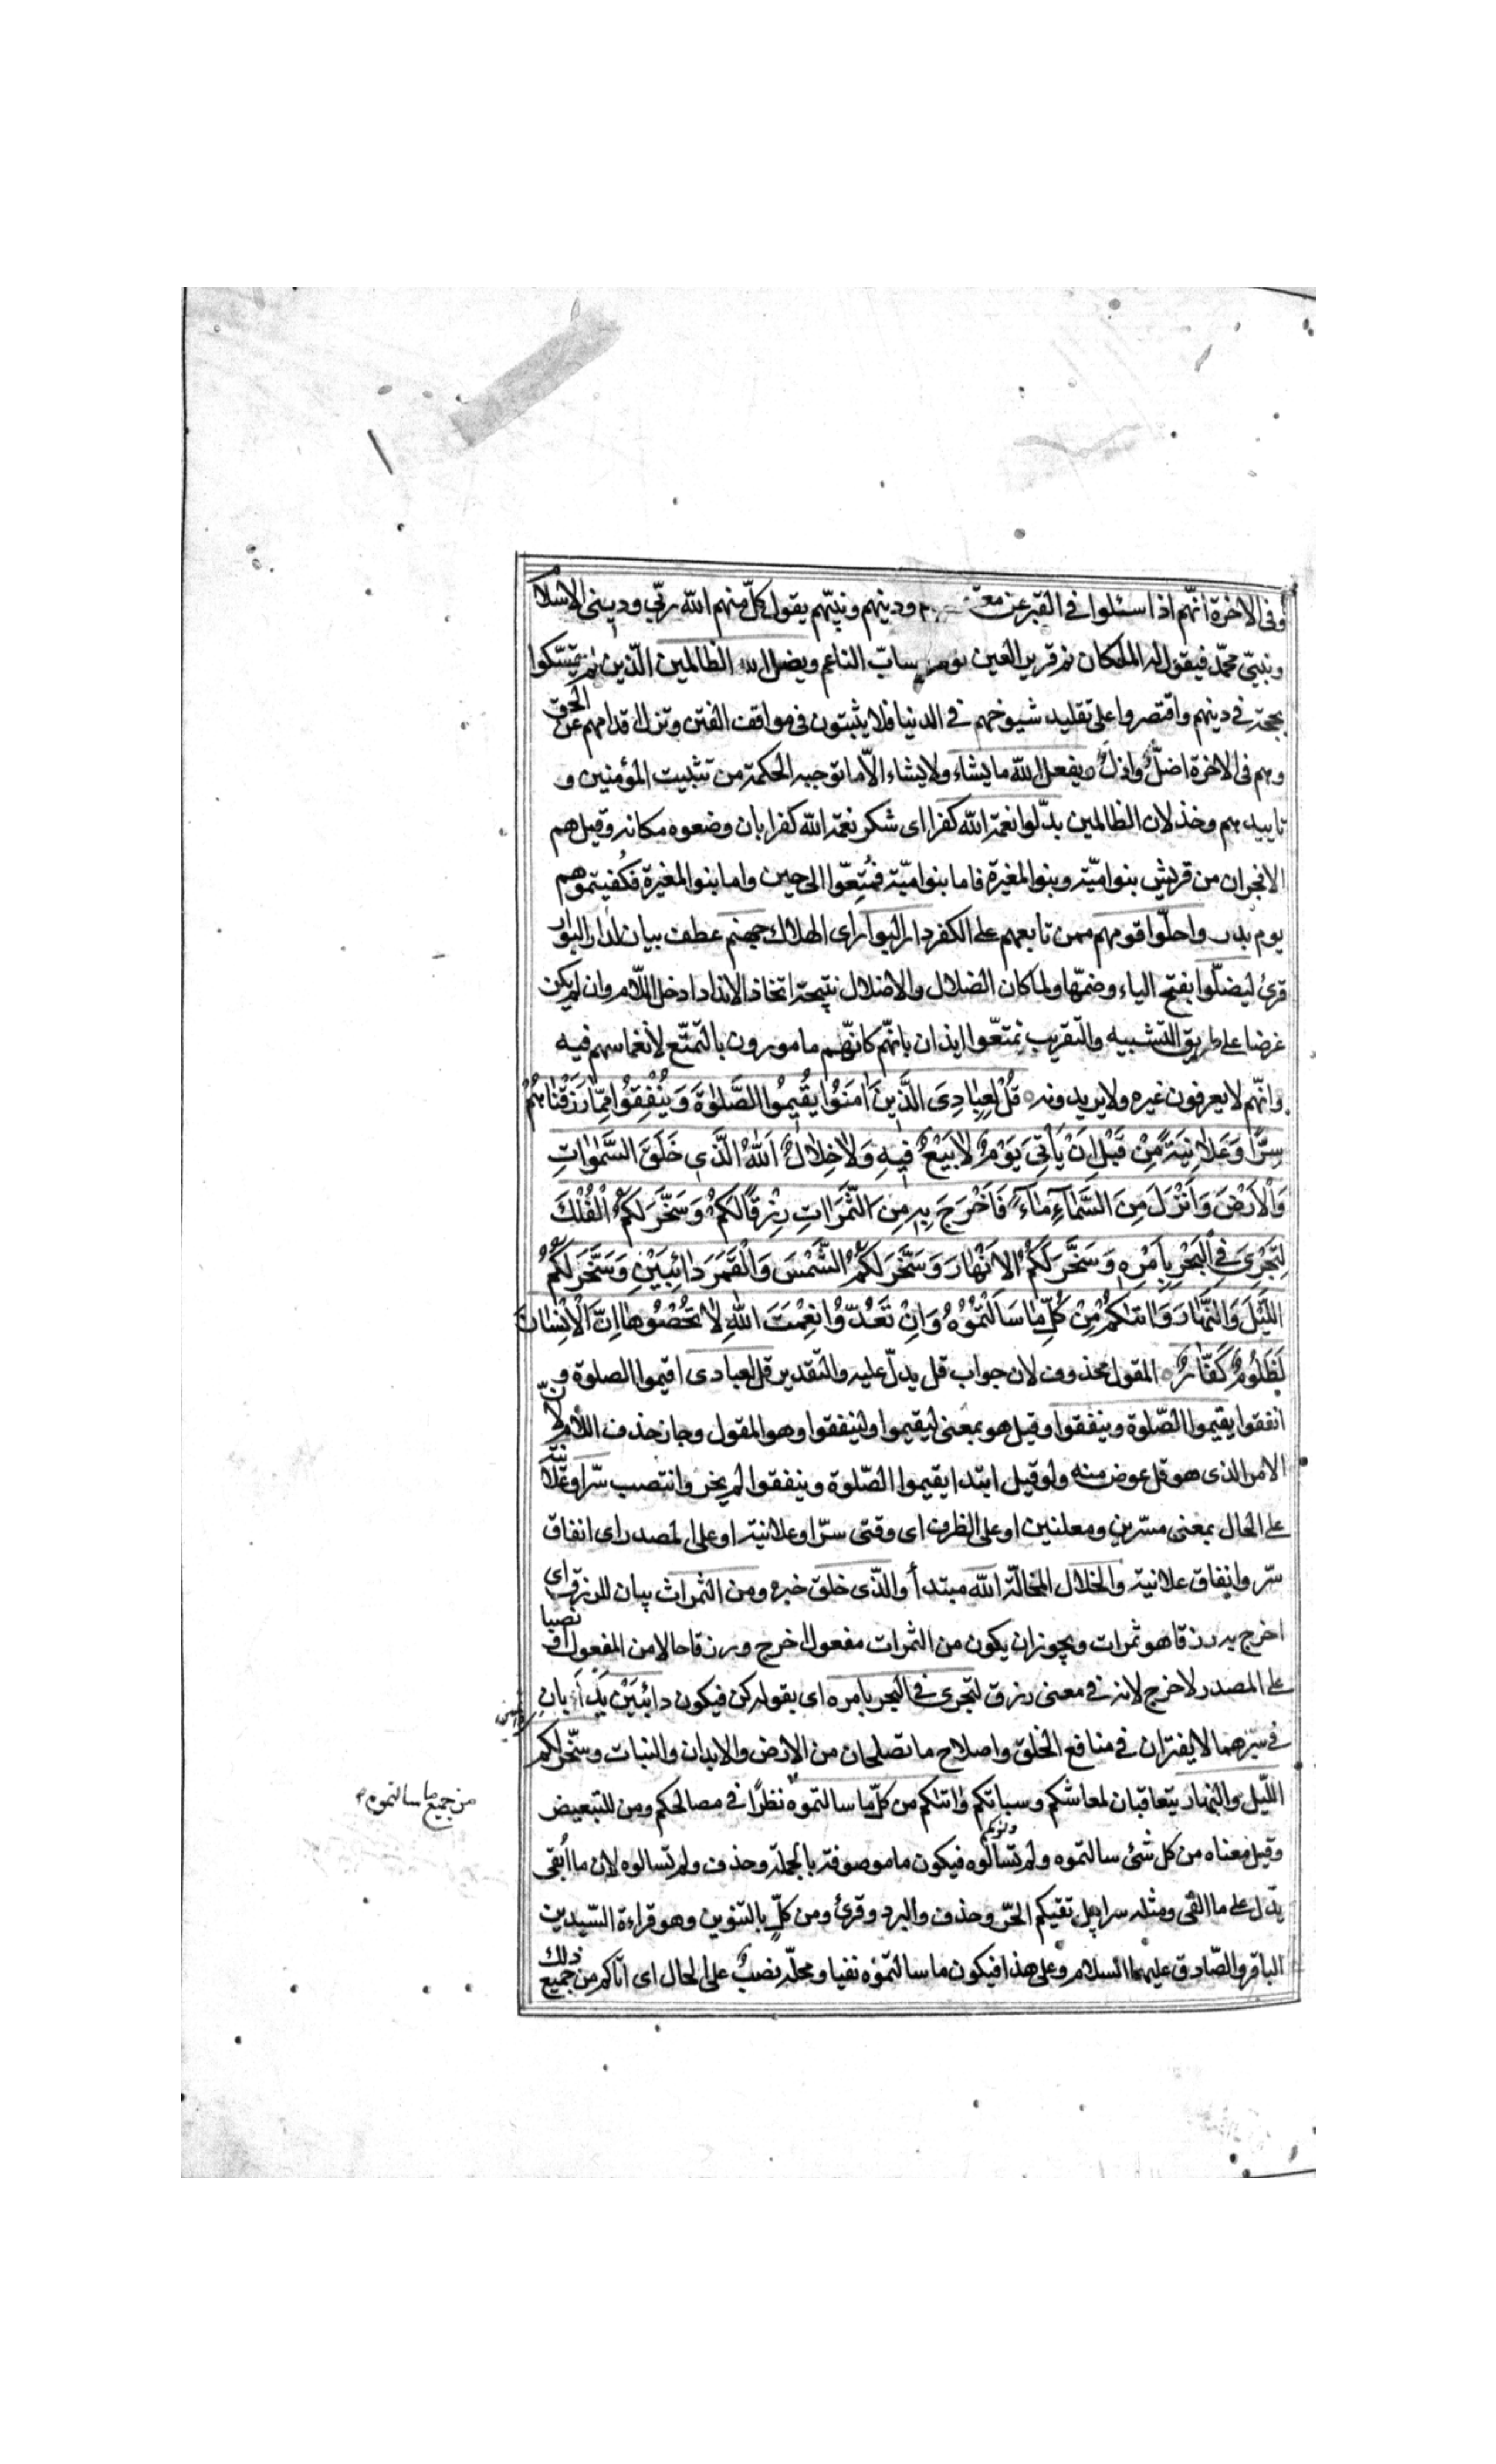 وفى الاخرة انّهم اذا سئلوا فى القبر عن ودينهم ونبيّهم يقول كلّ منهم اللّه ربّى ودينى الاسلام
ونبيّى محمّد فيقول له الملكان نم قرير العين نوم الشابّ الناعم ويضلّ اللّه الظالمين الّذين لم يتمسّكوا
بحجّة فى دينهم واقتصروا على تقليد شيوخهم فى الدنيا فلا يثبتون فى مواقف الفتن وتزلّ اقدامهم عن الحق
وهم فى الاخرة اضلّ واذلّ ويفعل اللّه ما يشاء ولا يشاء الّا ما توجبه الحكمة من تثبيت المؤمنين و
تاييدهم وخذلان الظالمين بدّلوا نعمة اللّه كفرا اى شكر نعمة اللّه كفرا بان وضعوه مكانه وقيل هم
الافجران من قريش بنوا ميّة وبنوا المغيرة فاما بنوا ميّة فمُتِّعوا الى حين واما بنوا المغيرة فكُفيتموهم
يوم بدر واحلّوا قومهم ممن تابعهم على الكفر دار البوار اى الهلاك جهنم عطف بيان لدار البوار
قرئ ليضلّوا بفتح الياء وضمّها ولما كان الضلال والاضلال نتيجة اتخاذ الانداد ادخل اللّام وان لم يكن
غرضا على طريق التشبيه والتقريب تمتّعوا ايذان بانهّم كانّهم مامورون بالتمتّع لانغماسهم فيه
وانهّم لا يعرفون غيره ولا يريدونه ۝ قُلْ لِعِبَادِىَ الَّذِينَ اٰمَنُوا يُقِيمُوا الصَّلٰوةَ وَيُنْفِقُوا مِمَّا رَزَقْنَاهُمْ
سِرًّا وَعَلَانِيَةً مِنْ قَبْلِ اَنْ يَأْتِىَ يَوْمٌ لَا بَيْعٌ فِيهِ وَلَا خِلَالٌ اَللّٰهُ الَّذِى خَلَقَ السَّمٰوَاتِ
وَالْاَرْضَ وَاَنْزَلَ مِنَ السَّمَاءِ مَاءً فَاَخْرَجَ بِهِ مِنَ الثَّمَرَاتِ رِزْقًا لَكُمْ وَسَخَّرَ لَكُمُ الْفُلْكَ
لِتَجْرِىَ فِى الْبَحْرِ بِاَمْرِهِ وَسَخَّرَ لَكُمُ الْاَنْهَارَ وَسَخَّرَ لَكُمُ الشَّمْسَ وَالْقَمَرَ دَائِبَيْنِ وَسَخَّرَ لَكُمُ
اللَّيْلَ وَالنَّهَارَ وَاٰتٰىكُمْ مِنْ كُلِّ مَا سَاَلْتُمُوهُ وَاِنْ تَعُدُّوا نِعْمَتَ اللّٰهِ لَا تُحْصُوهَا اِنَّ الْاِنْسَانَ
لَظَلُومٌ كَفَّارٌ ۝ المقول محذوف لان جواب قل يدلّ عليه والتقدير قل لعبادى اقيموا الصلوة و
انفقوا يقيموا الصّلوة وينفقوا وقيل هو بمعنى ليقيموا ولينفقوا وهو المقول وجاز حذف اللام لانّ
الامر الذى هو قل عوض منه ولو قيل ابتداء يقيموا الصّلوة وينفقوا لم يجز وانتصب سرّا وعلانية
على الحال بمعنى مسرّين ومعلنين او على الظرف اى وقتى سرّ او علانية او على المصدر اى انفاق
سرّ وانفاق علانية والخلال المخالّة اللّه مبتدأ والّذى خلق خبره ومن الثمراث بيان للرزق اى
اخرج به رزقا هو ثمرات ويجوز ان يكون من الثمرات مفعول اخرج ورزقا حالا من المفعول او نصبا
على المصدر لاخرج لانه فى معنى رزق لتجرى فى البحر بامره اى بقوله كن فيكون دائِبَيْن يدأبانِ
فى سيرهما لا يفتران فى منافع الخلق واصلاح ما تصلحان من الارض والابدان والنبات وسخّر لكم
اللّيل والنهار يتعاقبان لمعاشكم وسباتكم واتاكم من كلّ ما سالتموه نظرًا فى مصالحكم ومن للتبعيض
من جميع ما سالتموه
وقيل معناه من كل شئ سالتموه ولم تسالوه فيكون ما موصوفة بالجملة وحذف ولم تسالوه لان ما اُبقى
يدّل على ما القى ومثله سرابيل تقيكم الحرّ وحذف والبرد وقرئ ومن كلٍّ بالتنوين وهو قراءة السّيدين
الباقر والصّادق عليهما السلام وعلى هذا فيكون ما سالتموه نفيا ومحلّه نصبٌ على الحال اى اتاكم من جميع ذلك